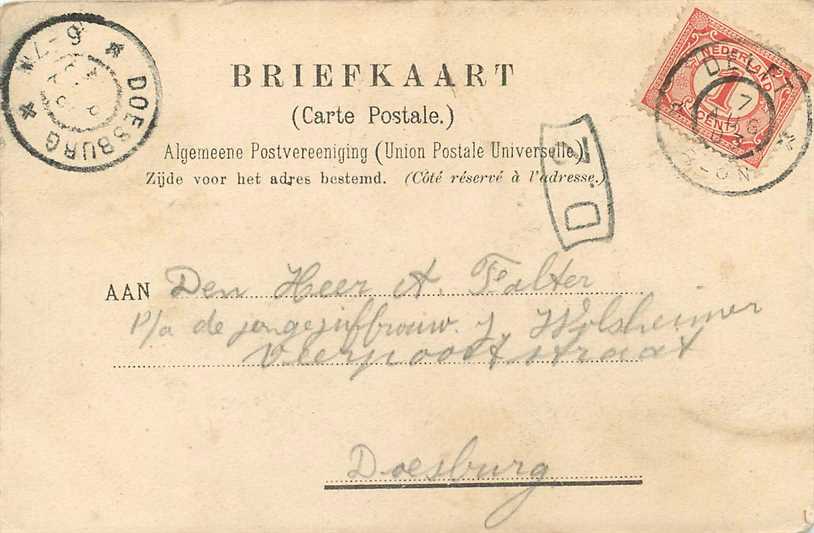 * DOESBURG * 6-7N
NEDERLAND
1
CENT
DELFT
7
AUG
BRIEFKAART
(Carte Postale.)
Algemeene Postvereeniging (Union Postale Universelle)
Zijde voor het adres bestemd. (Côté réservé à l'adresse.)
D.
AAN Den Heer A. Falter
P/a de jongejuffrouw. J. Wolsheimer
Veerpoortstraat
Doesburg